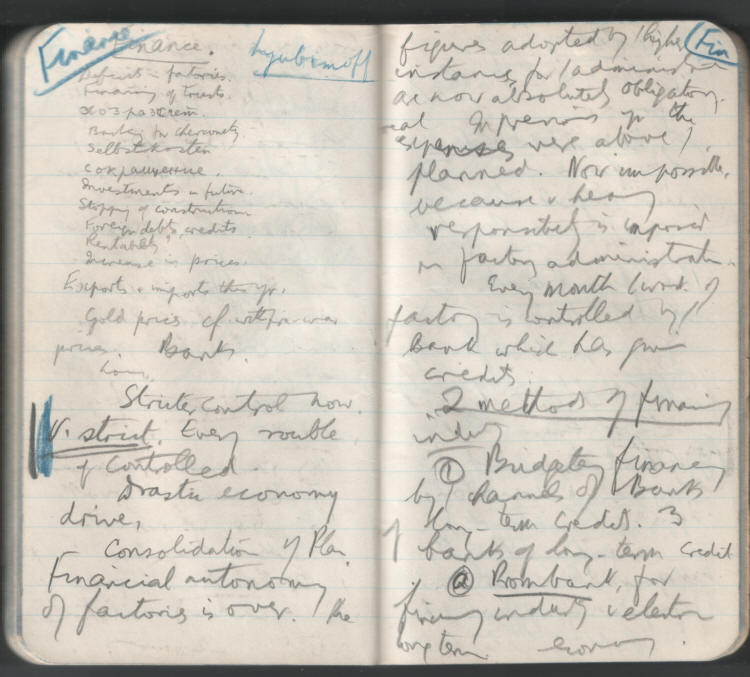 Finance Finance. Lyubimoff
Deficits in factories.
Financing of trusts.
хозрасчет.
Banking for chervonetz
Selbstkosten
сокращение.
Investments in future.
Stopping of construction
Foreign debts, credits
Rentability?
Increase in prices.
Exports & imports this yr.
Gold prices cf with pre-war
prices. Bank.
Stricter control now.
V. strict. Every rouble
of controlled.
Drastic economy
drive,
Consolidation of Plan.
Financial autonomy
of factories is over. The
figures adopted by higher Fin
instances for administ
are now absolutely obligatory.
In previous yr the
expenses were above
planned. Now impossible,
because v heavy
responsibility is imposed
on factory administration.
Every month work of
factory is controlled by
Bank which has given
credits.
2 methods of financing
industry
① Budgetary financing
by channels of Banks
of long-term credit. 3
banks of long-term credit
ⓐ Prombank, for
financing industry & electron
long term economy.